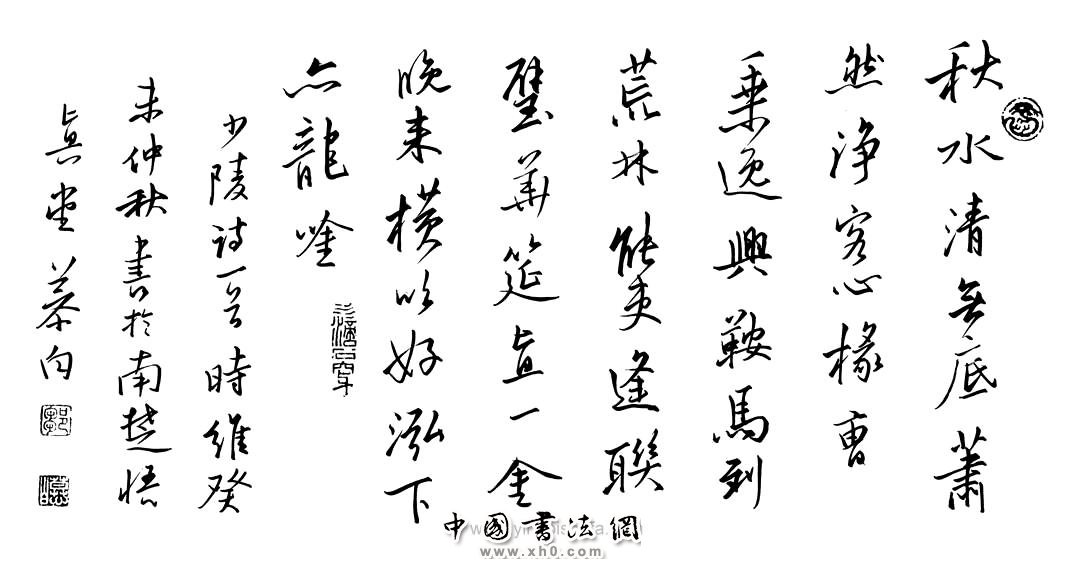 秋水清無底蕭
然淨客心椽曹
乘逸興鞍馬到
荒林能吏逢聯
璧華筵直一金
晚来橫吹好泓下
亦龍唫
水滴石穿
少陵詩一首時維癸
未仲秋書於南楚悟
真堂慕
中國書法網
www.xh0.com